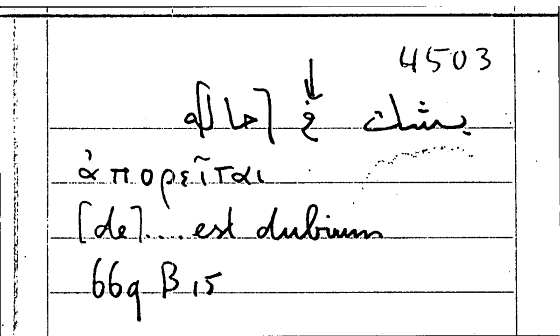 4503
يشك في [حاله]
ἀπορεῖται
[de].... est dubium
669 B 15